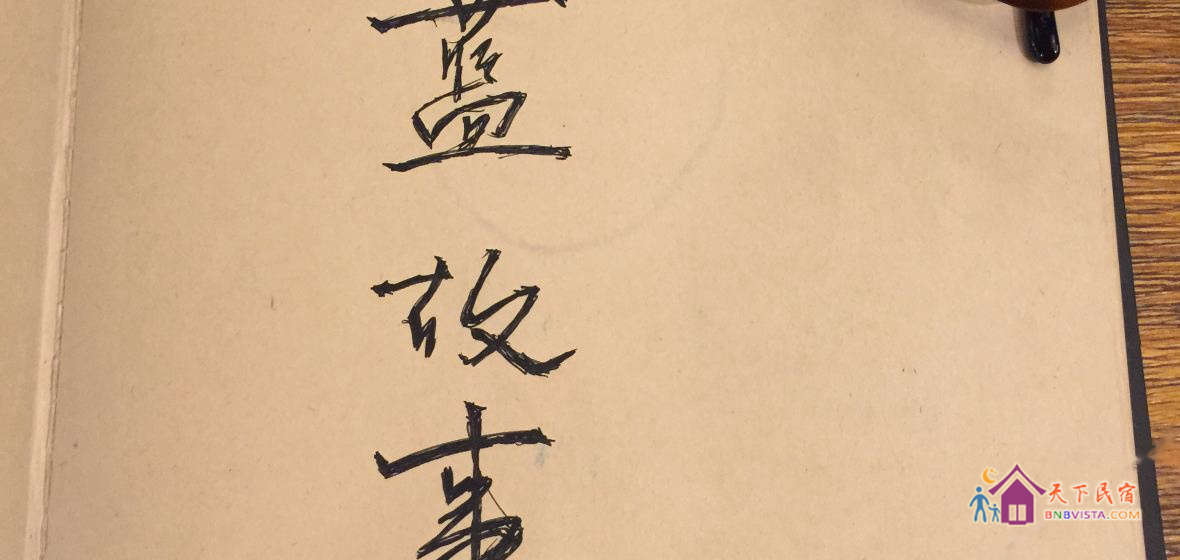 藍故事
天下民宿
BNBVISTA.COM